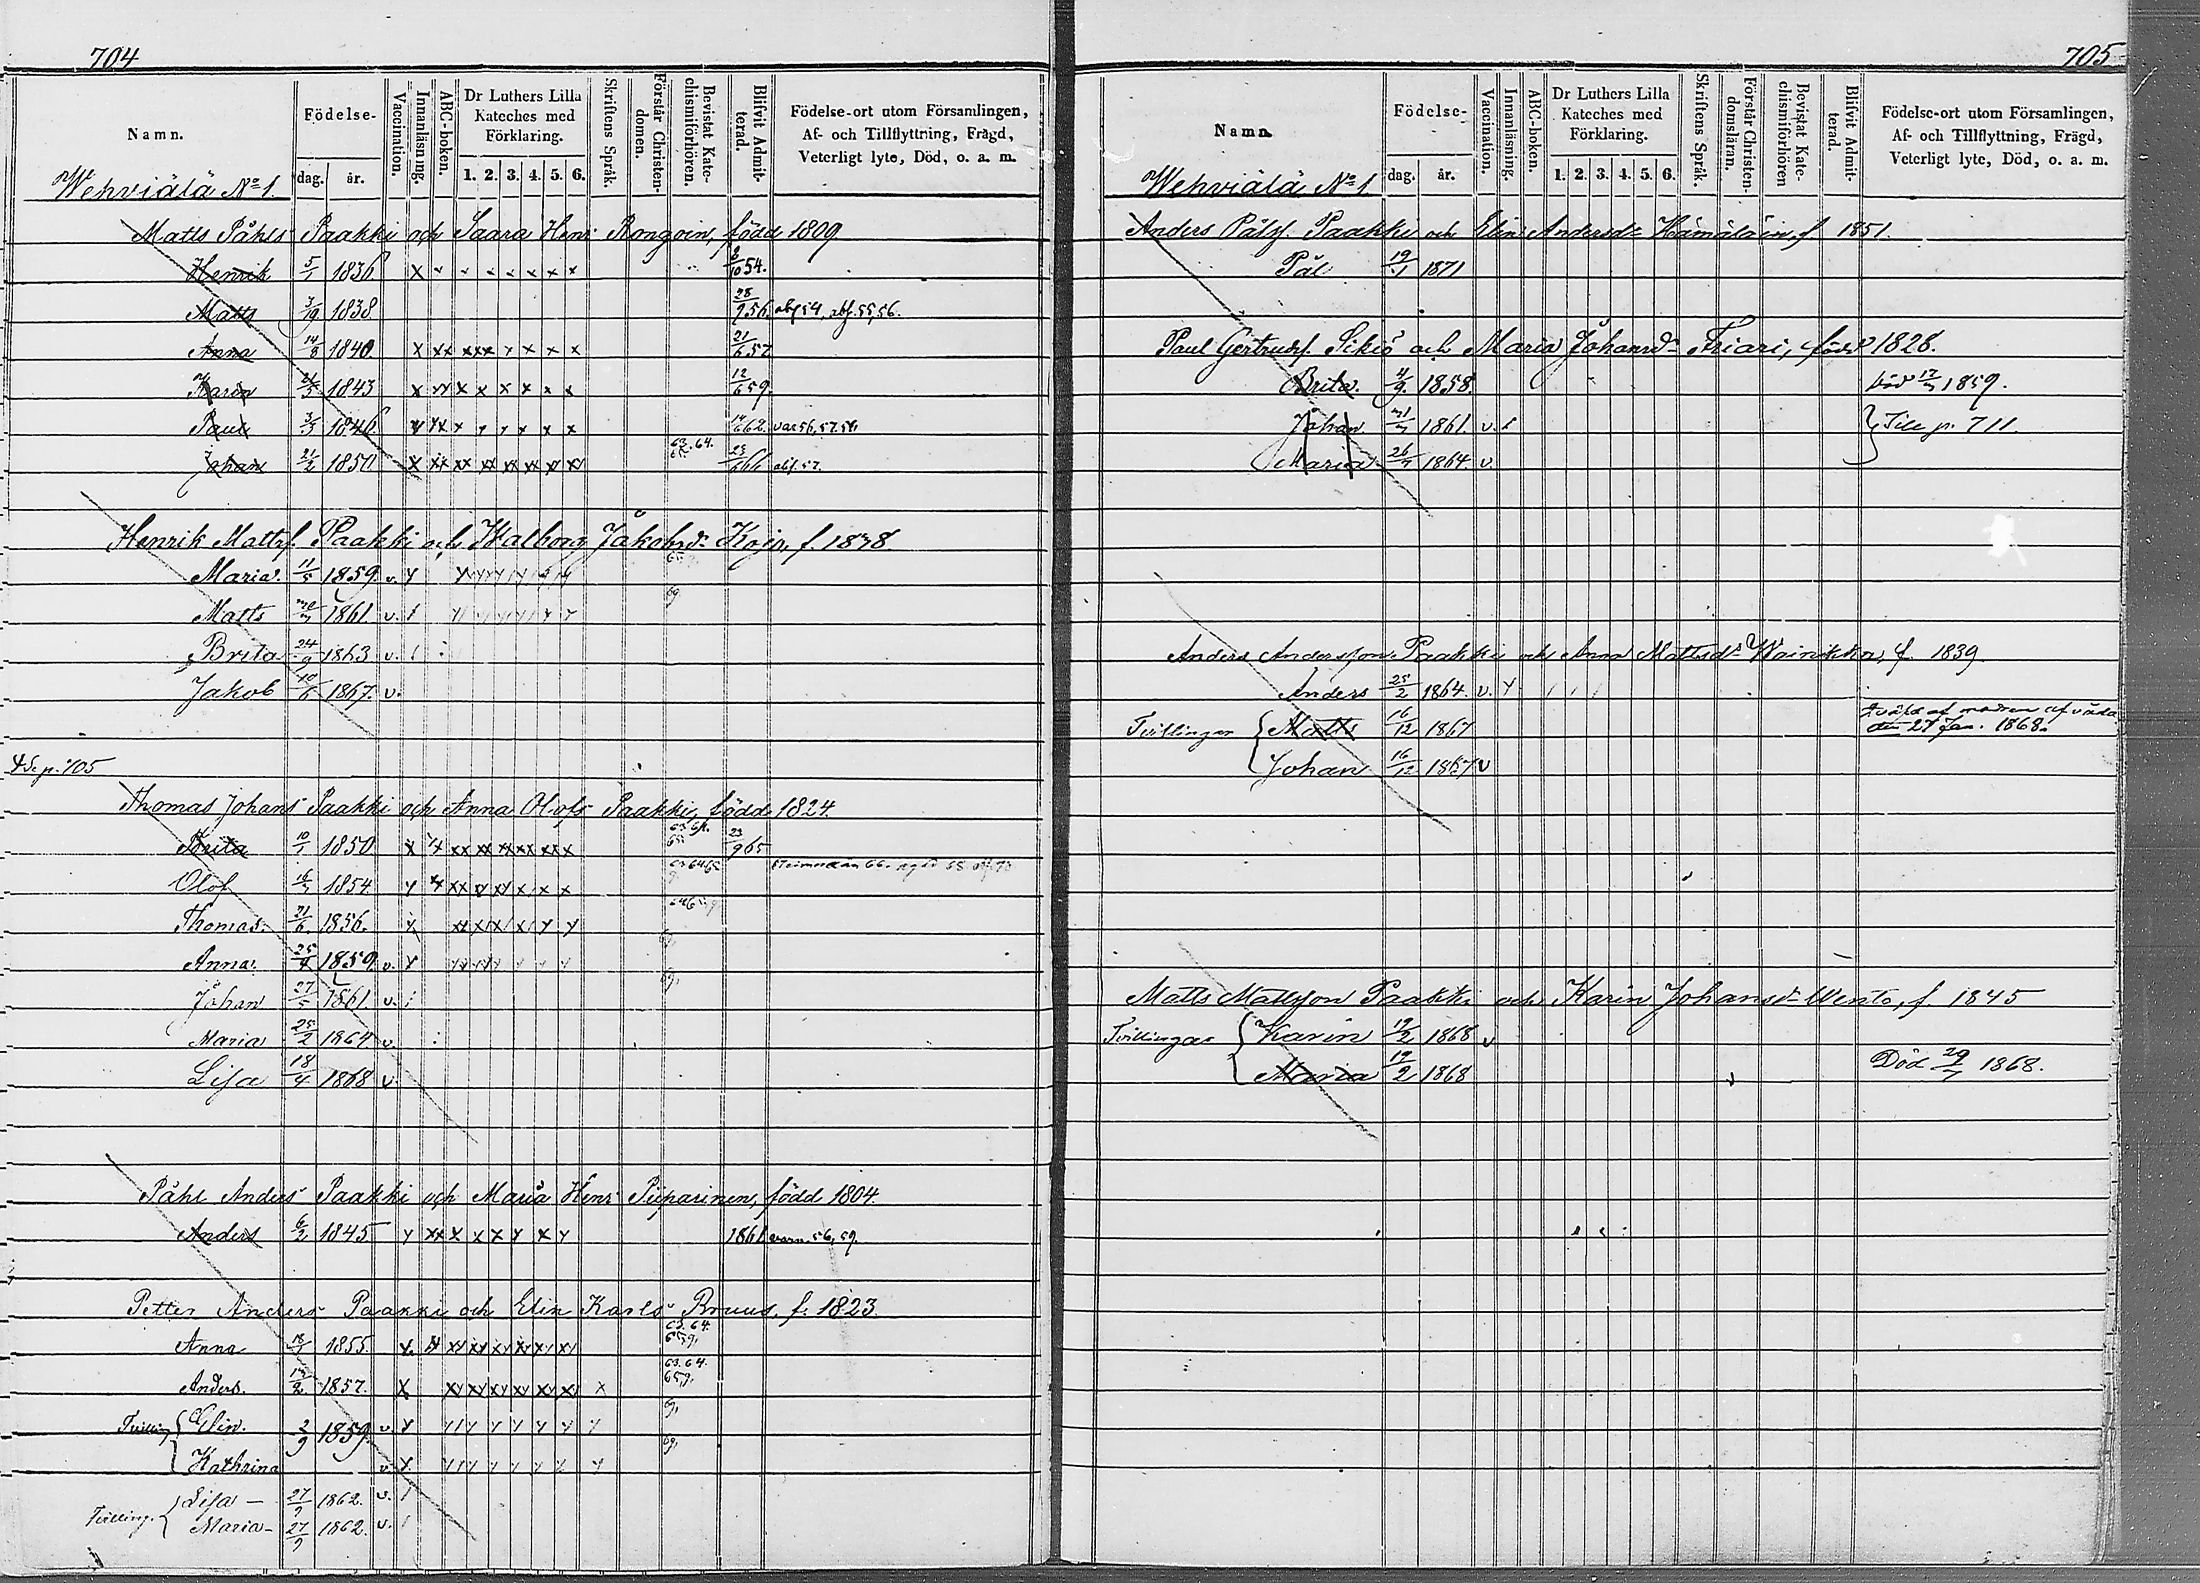 704
Namn.
Födelse-
dag. år.
Vaccination.
Innanläsning.
ABC-boken.
Dr Luthers Lilla
Kateches med
Förklaring.
1. 2. 3. 4. 5. 6.
Skriftens Språk.
Förstår Christen-
domen.
Bevistat Kate-
chismiförhören.
Blifvit Admit-
terad.
Födelse-ort utom Församlingen,
Af- och Tillflyttning, Frägd,
Veterligt lyte, Död, o. a. m.
Wehviälä No 1.
Matts Påhls Paakki och Saara Henr Rongoin, född 1809
Henrik 5/1 1836 x 8/10 54.
Matts 3/9 1838 28/9 56. abs 54, abs. 55, 56.
Anna 14/8 1840 x xx xxx x x x x 21/6 57
Karin 21/5 1843 x x x x x x x 12/6 59.
Paul 3/3 1846. x x x 14/6 62. var 56, 57, 58
Johan 21/2 1850 x xx xx xx xx xx xx xx 63. 64. 65. 23/6 66 abs. 57.
Henrik Mattsf. Paakki och Walborg Jakobsd. Kojo, f. 1838
Maria. 11/5 1859 v. y
Matts 1861. v.
Brita 24/9 1863 v.
Jakob 10/6 1867. v.
+ Se p. 705
Thomas Johans Paakki och Anna Olofs Paakki, född 1824.
Brita 10/1 1850 x x xx xx xx xx xx x 63 64. 65. 23/9 65
Olof 1854. 63 64 65
Thomas. 21/6 1856. 64 65
Anna. 25/4 1859. v. y
Johan 27/5 1861. v.
Maria 25/2 1864 v.
Lisa 18/4 1868 v.
Påhl Anders Paakki och Maria Henr Piiparinen, född 1804.
Anders 6/2 1845 y xx x x x y x y 1861 varn. 56, 59.
Petter Anders Paakki och Elin Karls Bruus, f. 1823.
Anna 1855. 63. 64. 65, 9.
Anders. 1857. x 63. 64. 65, 9.
Tvilling { Elin. 2/9 1859. v y
Kathrina v. y
Tvilling. { Lisa — 27/9 1862. v.
Maria — 27/9 1862. v.
705
Namn.
Födelse-
dag. år.
Vaccination.
Innanläsning.
ABC-boken.
Dr Luthers Lilla
Kateches med
Förklaring.
1. 2. 3. 4. 5. 6.
Skriftens Språk.
Förstår Christen-
domsläran.
Bevistat Kate-
chismiförhören
Blifvit Admit-
terad.
Födelse-ort utom Församlingen,
Af- och Tillflyttning, Frägd,
Veterligt lyte, Död, o. a. m.
Wehviälä No 1
Anders Pålsf. Paakki och Elin Andersd. Hämäläin, f. 1851.
Pål 19/1 1871
Paul Gertrudsf. Sikiö och Maria Johansd. Friari, född 1828.
Brita. 4/9. 1858. död 1859.
Johan 1861. v. } Till p. 711.
Maria 26/7 1864. v.
Anders Andersson Paakki och Anna Mattsd. Wainikka, f. 1839.
Anders 25/2 1864. v. y
Tvillingar { Matts 16/12 1867 qväfd af modren af våda den 27 Jan. 1868.
Johan 16/12 1867 v
Matts Mattsson Paakki och Karin Johansd. Wento, f. 1845
Tvillingar { Karin 19/2 1868 v
Maria 19/2 1868 Död 29/7 1868.